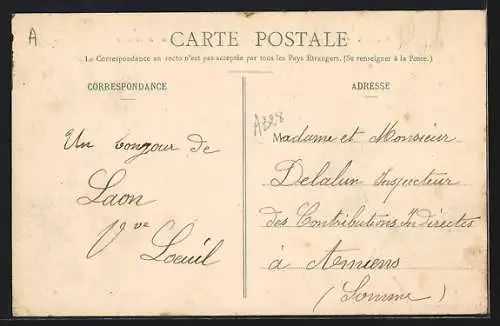 A
CARTE POSTALE
La Correspondance au recto n'est pas acceptée par tous les Pays Etrangers. (Se renseigner à la Poste.)
CORRESPONDANCE
ADRESSE
A328
Un bonjour de
Laon
Vve Loeüil
Madame et Monsieur
Delalun Inspecteur
des Contributions Indirectes
à Amiens
(Somme)